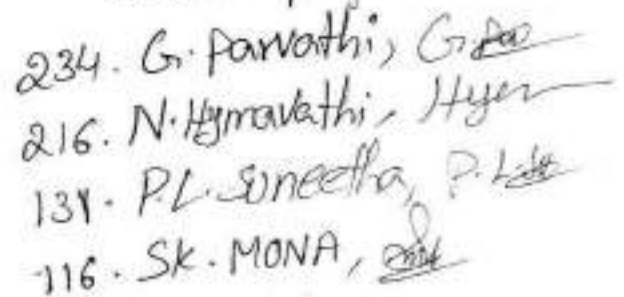 234. G. Parvathi,
216. N. Hymavathi,
138. P.L. Suneetha,
116. SK. MONA,